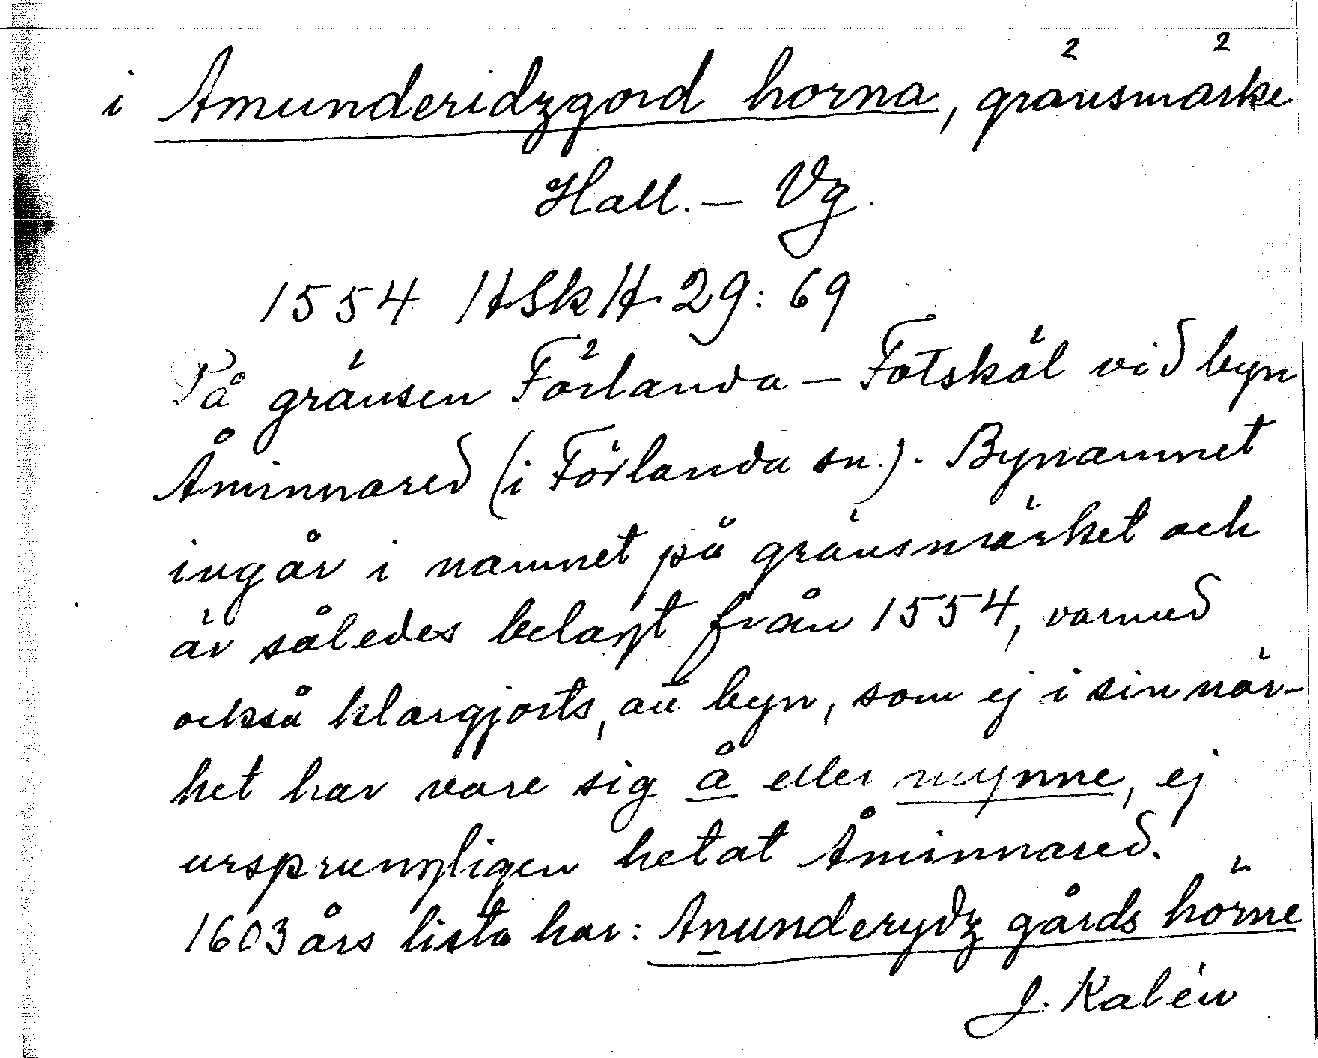 i Amunderidzgord horna, gränsmärke
Hall. – Vg.
1554 HSkH 29: 69
På gränsen Förlanda – Fotskäl vid byn
Åminnared (i Förlanda sn.). Bynamnet
ingår i namnet på gränsmärket och
är således belagt från 1554, varmed
också klargjorts, att byn, som ej i sin när-
het har vare sig å eller mynne, ej
ursprungligen hetat Åminnared.
1603 års lista har: Anunderydz gårds hörne
J. Kalén